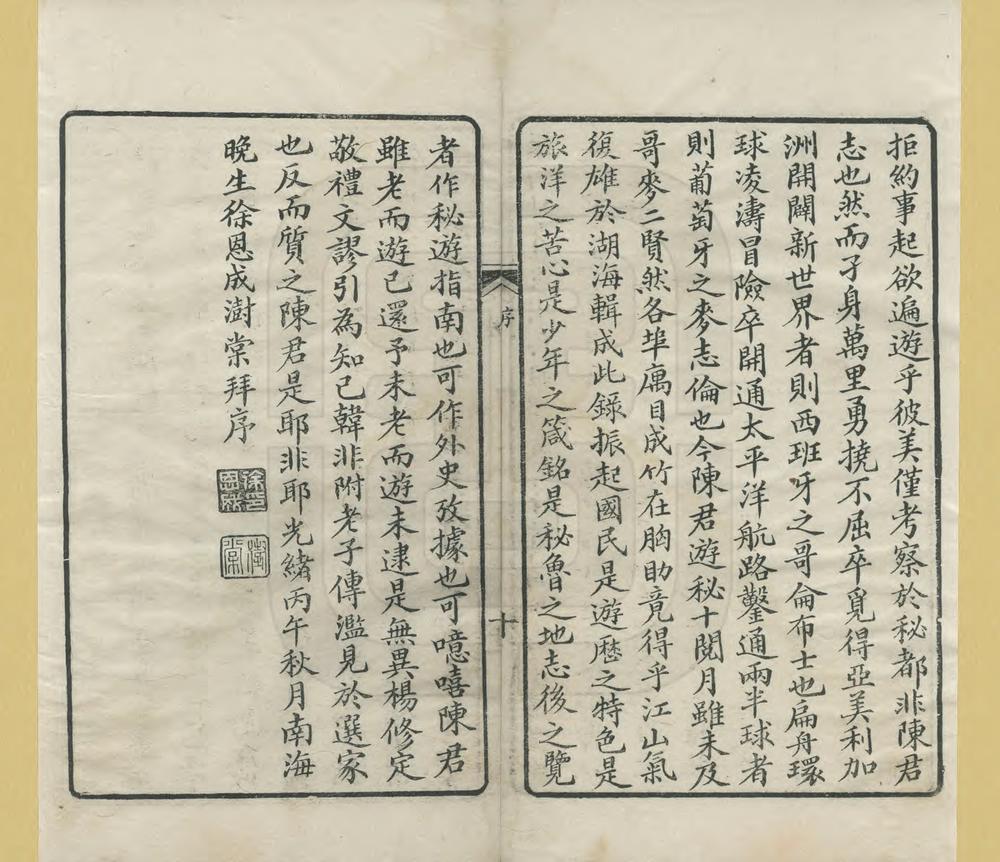 拒約事起欲遍遊乎彼美僅考察於秘都非陳君
志也然而孑身萬里勇撓不屈卒覓得亞美利加
洲開闢新世界者則西班牙之哥侖布士也扁舟環
球凌濤冒險卒開通太平洋航路鑿通兩半球者
則葡萄牙之麥志倫也今陳君遊秘十閱月雖未及
哥麥二賢然各埠厲目成竹在胸助竟得乎江山氣
復雄於湖海輯成此錄振起國民是遊歷之特色是
旅洋之苦心是少年之箴銘是秘魯之地志後之覽
序
十
者作秘遊指南也可作外史攷據也可噫嘻陳君
雖老而遊已還予未老而遊未逮是無異楊修定
敬禮文謬引為知已韓非附老子傳濫見於選家
也反而質之陳君是耶非耶光緒丙午秋月南海
晚生徐恩成澍棠拜序
徐印恩成
澍棠